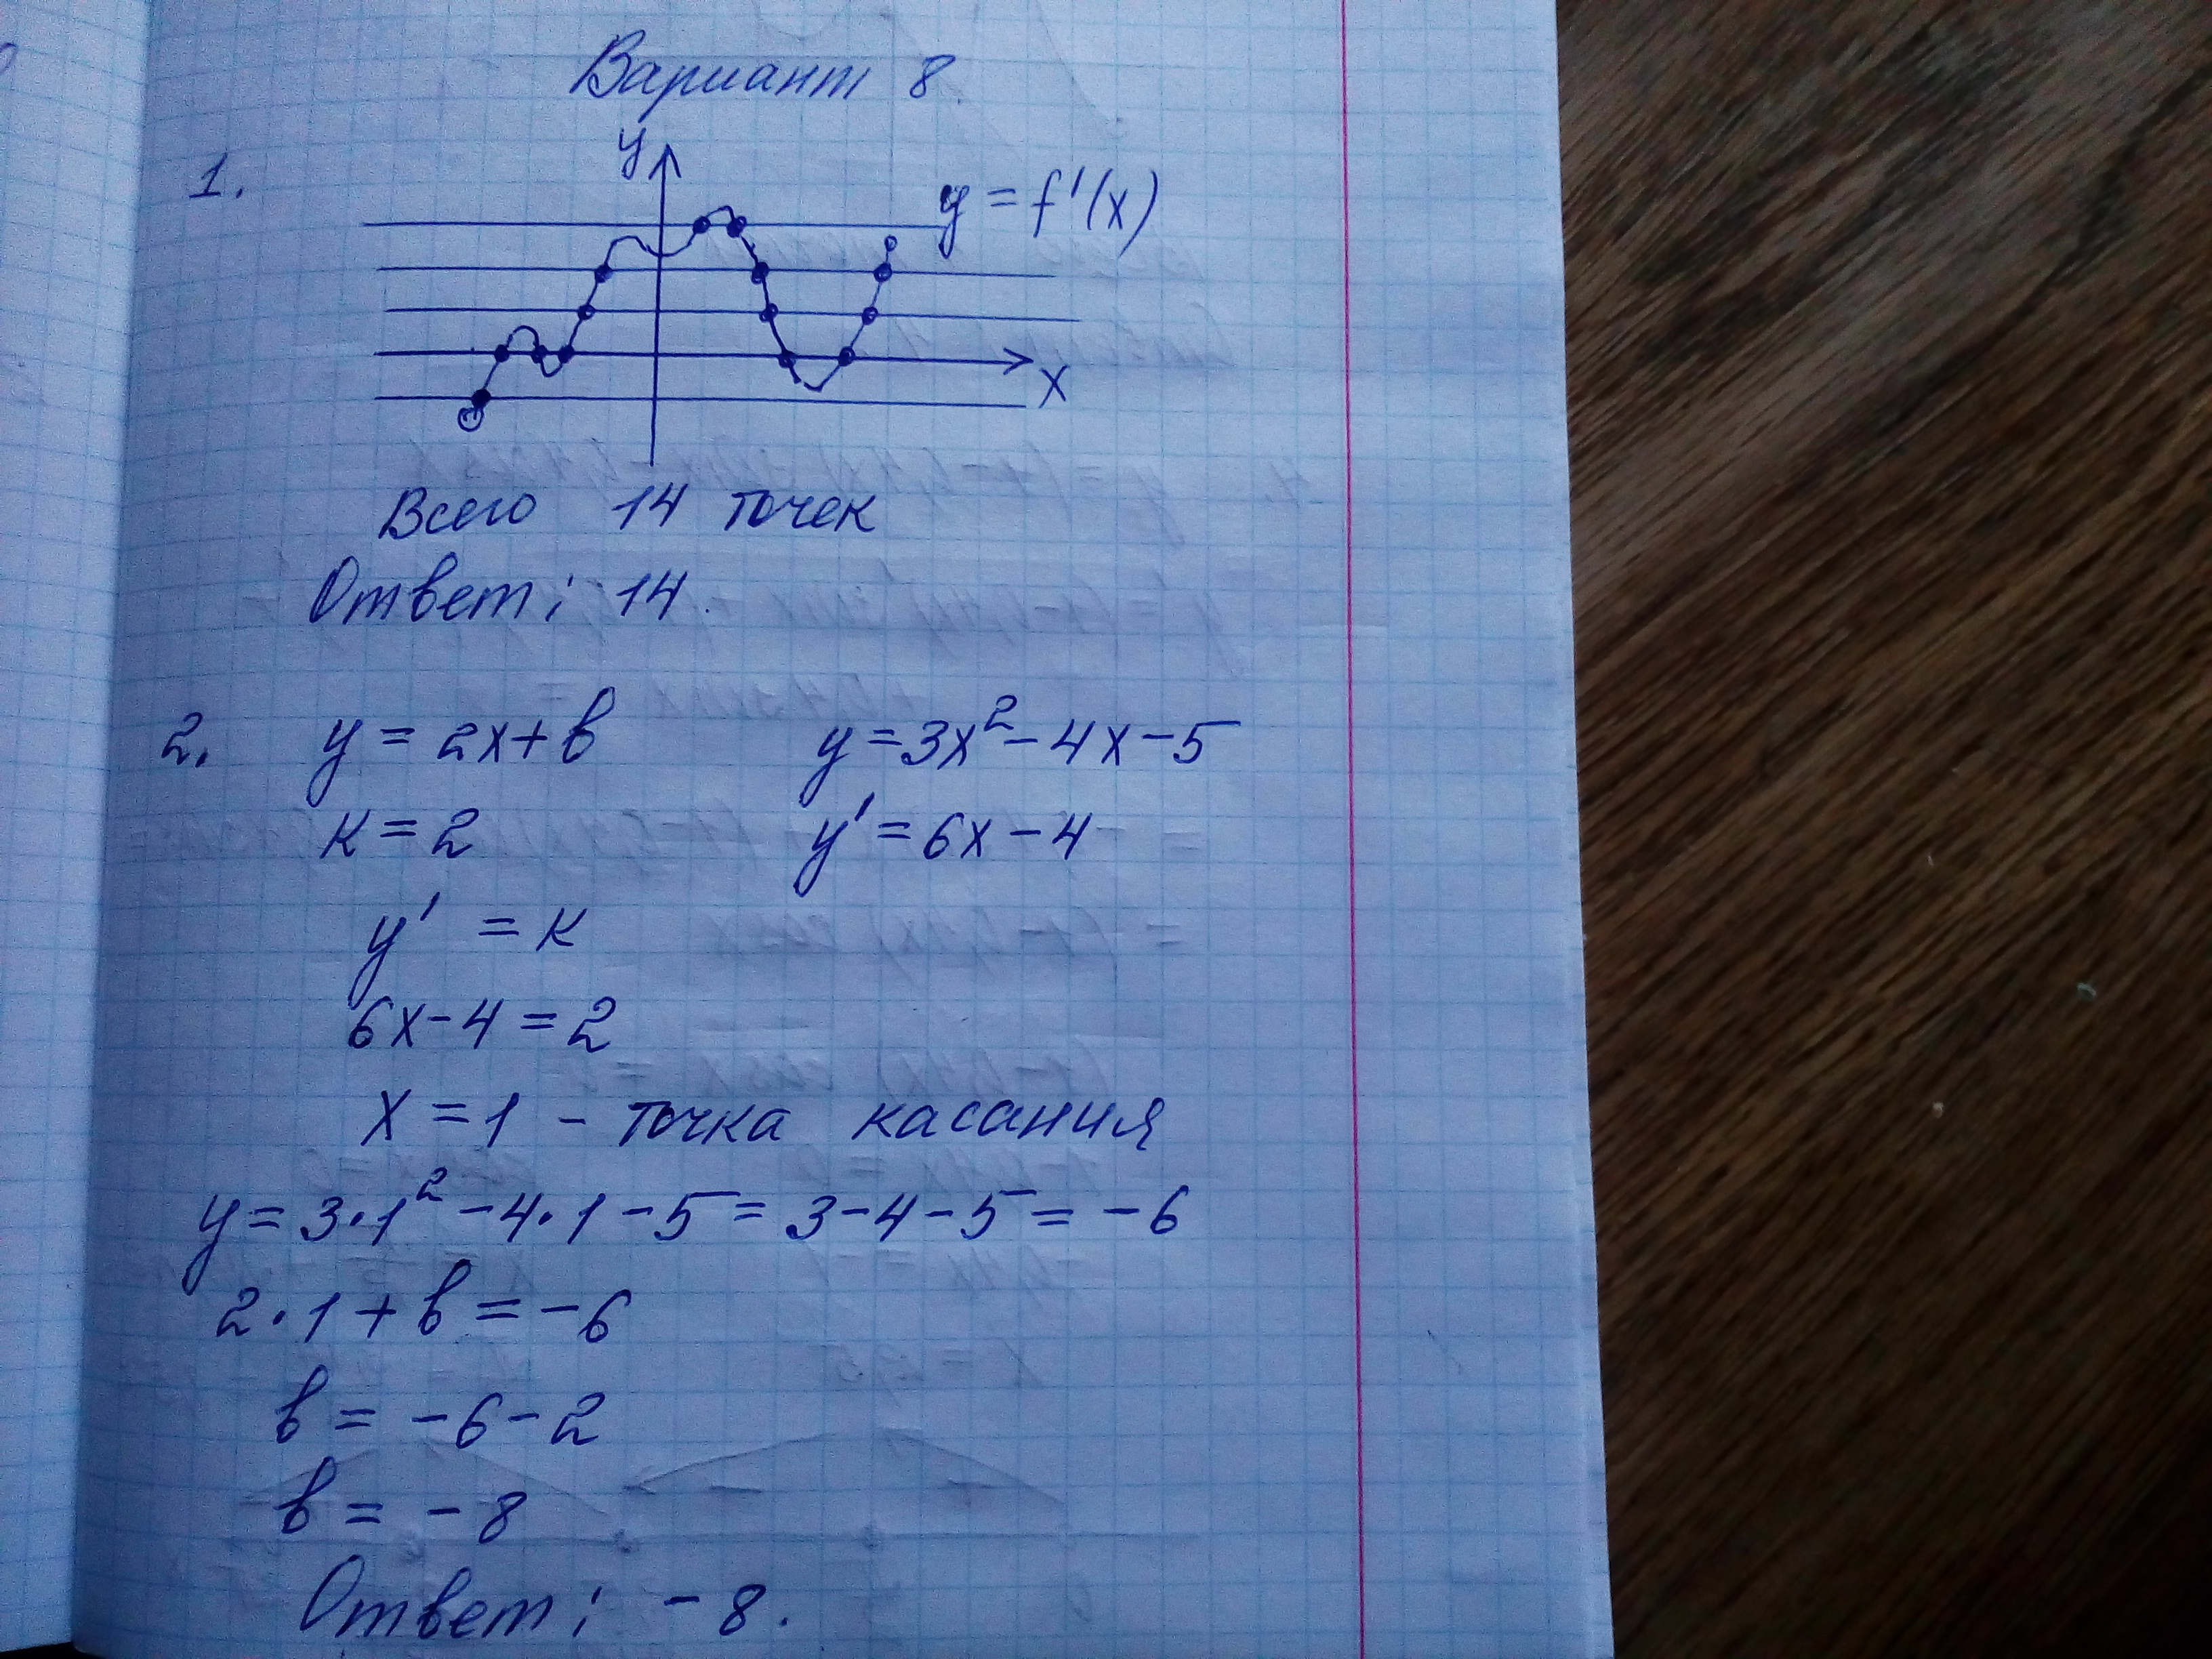 Вариант 8.
1.
y
y = f'(x)
x
Всего 14 точек
Ответ: 14.
2. y = 2x + в y = 3x² - 4x - 5
к = 2 y' = 6x - 4
y' = к
6x - 4 = 2
x = 1 - точка касания
y = 3·1² - 4·1 - 5 = 3 - 4 - 5 = -6
2·1 + в = -6
в = -6 - 2
в = -8
Ответ: -8.